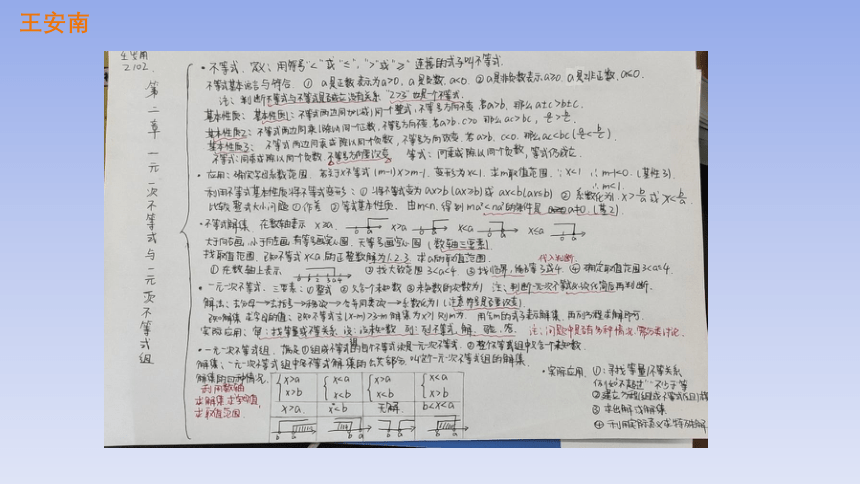 王安南
王安南
2102.
第二章 一元一次不等式与一元一次不等式组
·不等式. 定义:用符号"<"或"≤",">"或"≥"连接的式子叫不等式.
不等式基本语言与符号. ① a是正数表示为a>0, a是负数, a<0. ② a是非负数表示a≥0. a是非正数, a≤0.
注:判断不等式与不等式是否成立没有关系"2>3"也是个不等式.
基本性质: 基本性质1:不等式两边同加(减)同一个整式,不等号方向不变. 若a>b, 那么a±c>b±c.
基本性质2:不等式两边同乘(除以)同一正数,不等号方向不变. 若a>b, c>0 那么ac>bc,
基本性质3: 不等式两边同乘或除以同一个负数,不等号方向改变. 若a>b. c<0. 那么ac<bc
不等式:同乘或除以同一个负数,不等号方向要改变 等式:同乘或除以同一个负数,等式仍成立.
·应用:确定字母系数范围. 若关于x不等式(m-1)x>m-1. 变形为x<1. 求m取值范围. ∵x<1 ∴m-1<0. (基性3).
∴m<1.
利用不等式基本性质将不等式变形:① 将不等式变为ax>b(ax≥b)或ax<b(ax≤b) ② 系数化为1:
比较整式大小问题 ①作差 ②等式基本性质. 由m<n. 得到ma²<na²的条件是 a≠0. (基2).
·不等式解集. 在数轴表示 x≥a. x>a x<a x≤a
大于向右画,小于向左画,有等号画实心圆.无等号画空心圆 (数轴三要素)
找取值范围. 已知不等式x<a的正整数解为1.2.3. 求a的取值范围. 代入判断.
① 在数轴上表示 ② 找大致范围3<a<4 ③ 找临界,能否等3或4. ④ 确定取值范围3<a≤4.
·一元一次不等式. 三要素:①整式 ②只含一个未知数 ③未知数的次数为1 注:判断一元一次不等式必须化简后再判断.
解法:去分母→去括号→移项→合并同类项→系数化为1(注意符号是否要改变)
用含m的式子表示解集. 再列方程求解即可.
实际应用:审:找等量或不等关系. 设:设未知数. 列:列不等式. 解. 验. 答. 注:问题中是否有多种情况.需分类讨论.
·一元一次不等式组. 满足①组成不等式的每个不等式必是一元一次不等式. ②整个不等式组中只含一个未知数.
解集:一元一次不等式组中各不等式解集的公共部分. 叫这个一元一次不等式组的解集.
解集的四种情况.
利用数轴
求解集 求字母值,
求取值范围.
x>a x<a x>a x<a
x>b x<b x<b x>b
x>a. x<b 无解. b<x<a
·实际应用. ①:寻找等量/不等关系
例如"不超过""不少于"等
②建立方程(组)或不等式(组)
③ 求出解或解集
④ 利用实际意义求特殊解